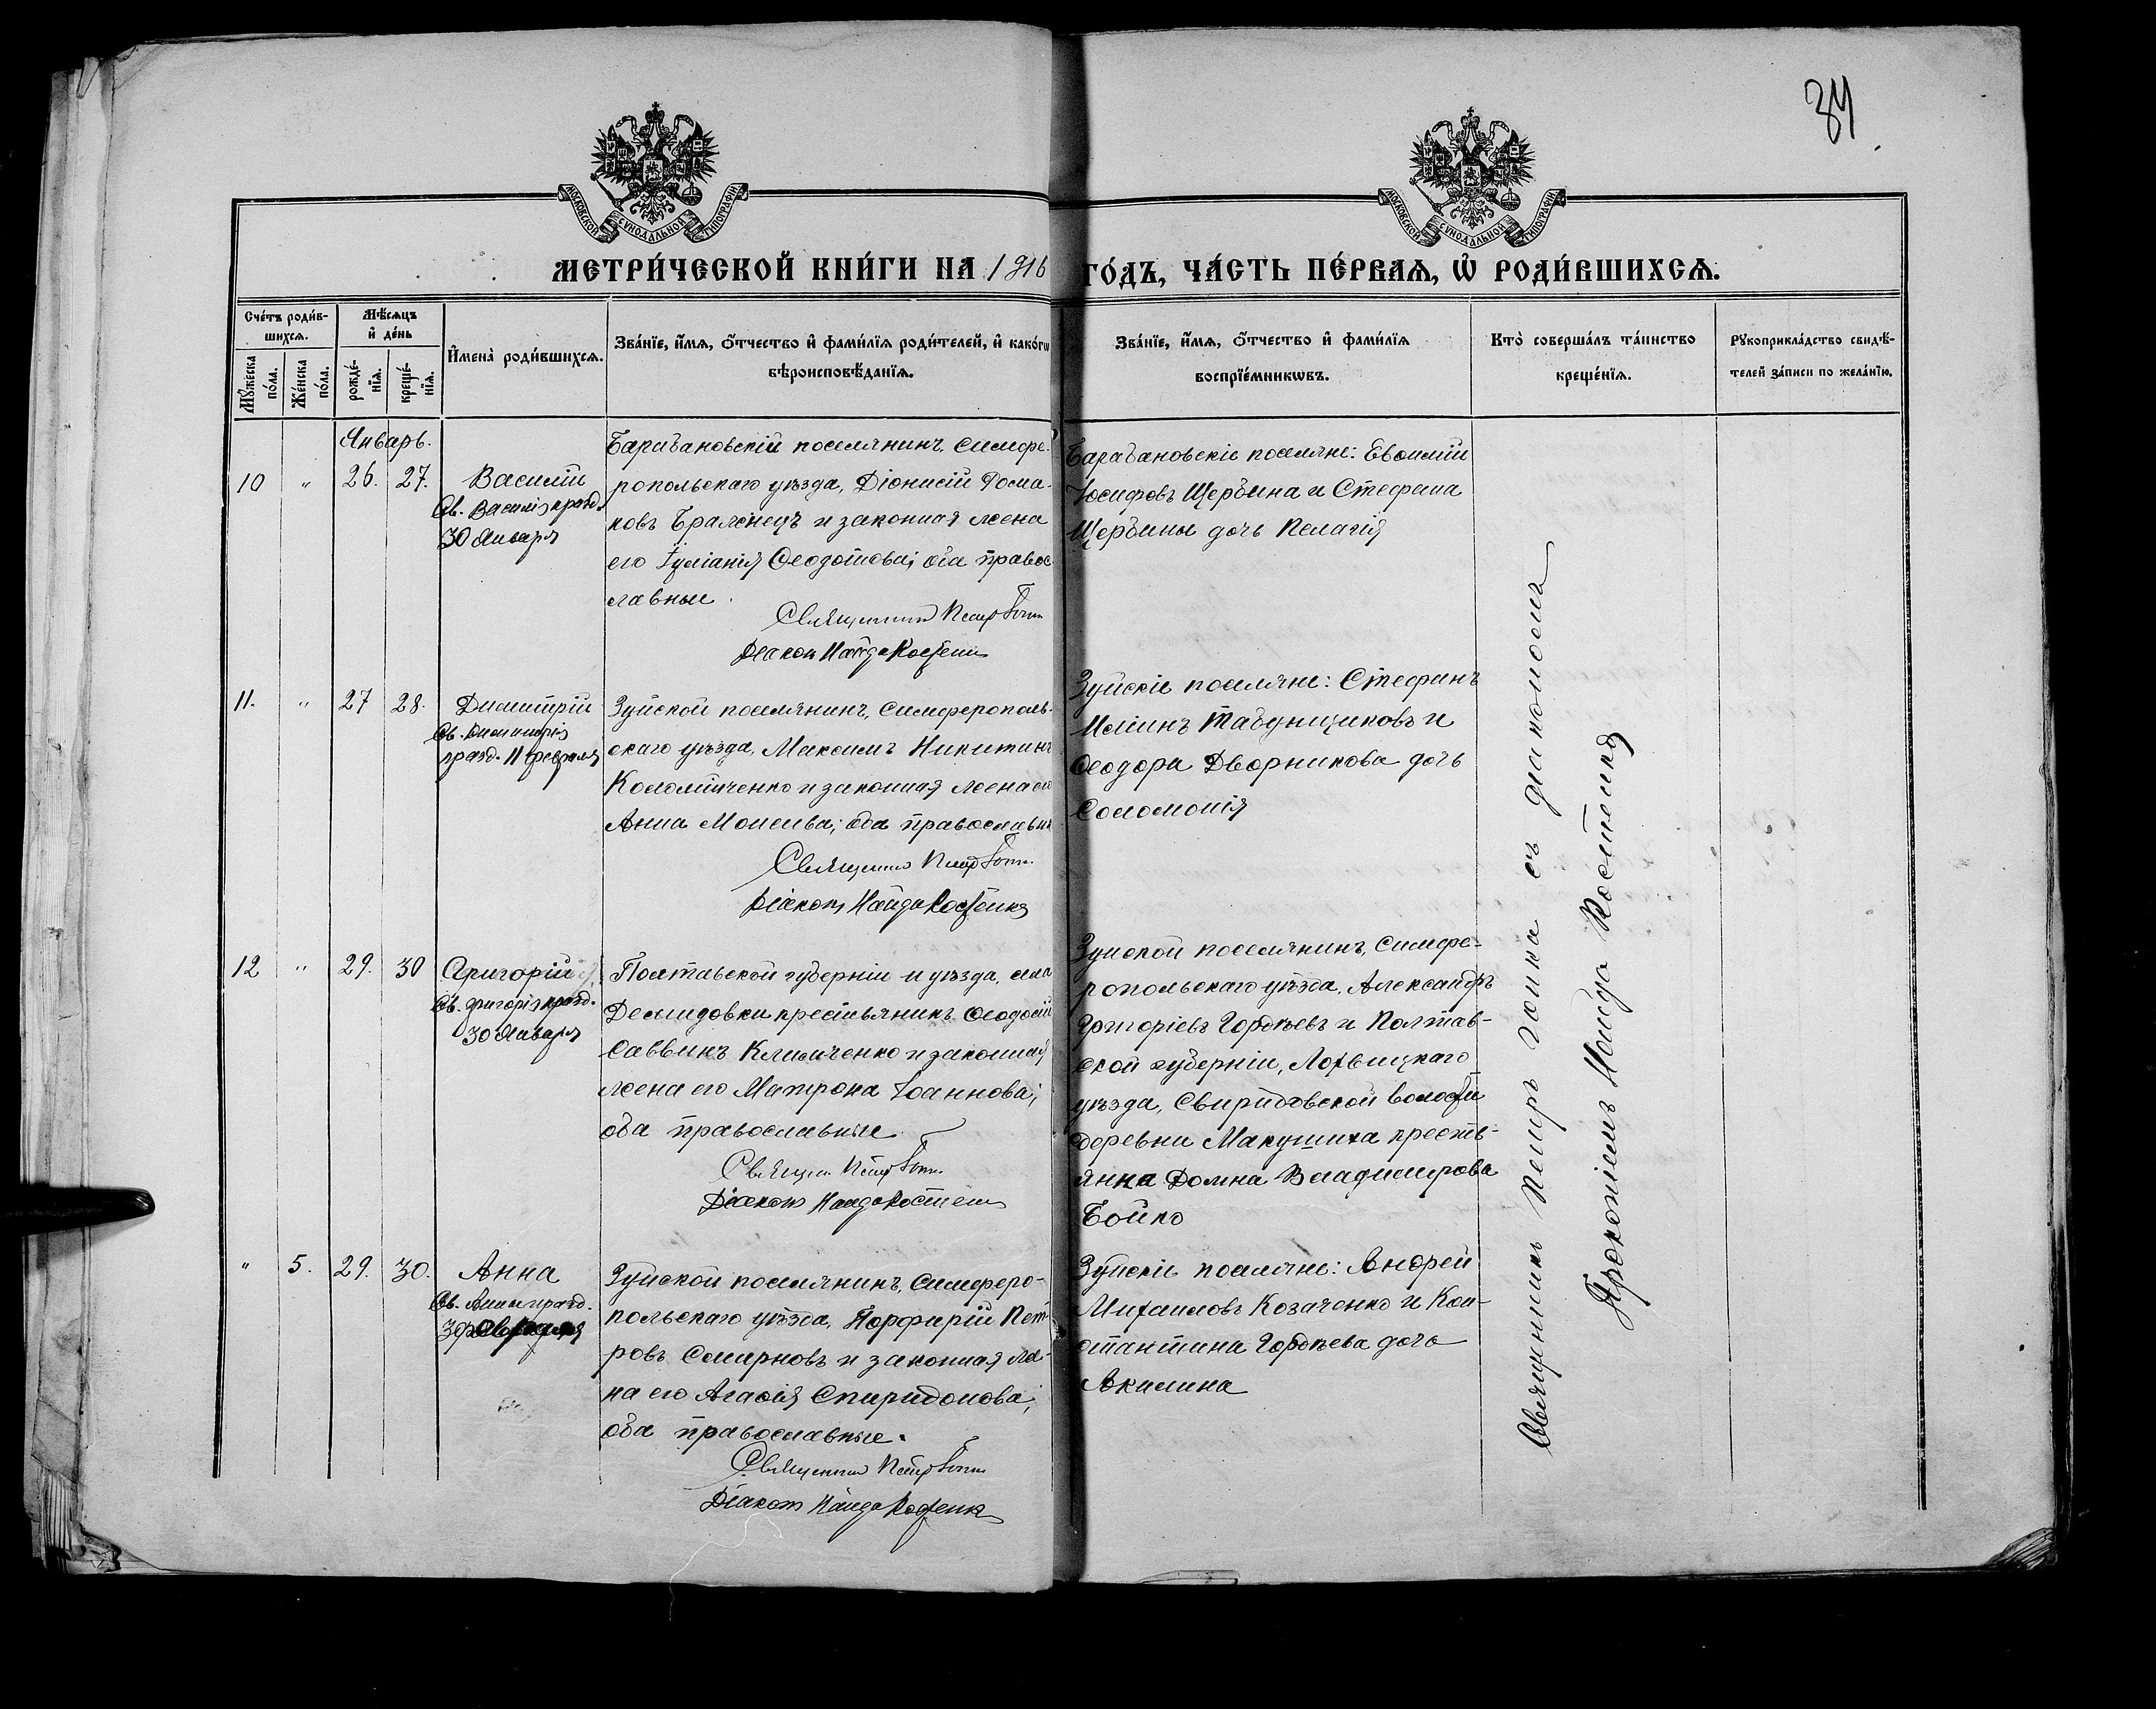 34
МОСКОВСКОЙ СѴНОДАЛЬНОЙ ТИПОГРАФІИ
МОСКОВСКОЙ СѴНОДАЛЬНОЙ ТИПОГРАФІИ
МЕТРИ́ЧЕСКОЙ КНИ́ГИ НА 1916 ГО́ДЪ, ЧА́СТЬ ПЕ́РВАѦ, Ѡ҆ РОДИ́ВШИХСѦ.
Сче́тъ роди́в-
шихсѧ.
Мꙋ́жеска по́ла.
Же́нска по́ла.
Мѣ́сѧцъ
и҆ де́нь
рожде́-
нїѧ.
креще́-
нїѧ.
И҆мена̀ роди́вшихсѧ.
Зва́нїе, и҆́мѧ, ѻ҆́тчество и҆ фами́лїѧ роди́телей, и҆ како́гѡ
вѣроисповѣ́данїѧ.
Зва́нїе, и҆́мѧ, ѻ҆́тчество и҆ фами́лїѧ
воспрїе́мникѡвъ.
Кто̀ соверша́лъ та́инство
креще́нїѧ.
Рꙋкоприкла́дство свидѣ́-
телей за́писи по жела́нїю.
Январь.
10 " 26. 27. Василій
Св. Василія празд.
30 Января
Барабановскій поселянинъ, Симфе-
ропольскаго уѣзда, Діонисій Рома-
ковъ Бражнецъ и законная жена
его Іуліанія Ѳеодотова; оба правос-
лавные.
Священникъ Петръ
Діаконъ Найда Костенко
Барабановскіе поселяне: Евѳимій
Іосифовъ Щербина и Стефана
Щербины дочь Пелагія
11. " 27 28. Димитрій
Св. Димитрія
празд. 11 февраля
Зуйской поселянинъ, Симферополь-
скаго уѣзда, Максимъ Никитинъ
Коломійченко и законная жена его
Анна Моисеева; оба православные
Священникъ Петръ
Діаконъ Найда Костенко
Зуйскіе поселяне: Стефанъ
Ильинъ Табунщиковъ и
Ѳеодора Дворникова дочь
Соломонія
12 " 29. 30 Григорій
Св. Григорія празд.
30 Января
Полтавской губерніи и уѣзда, села
Демидовки крестьянинъ Ѳеодосій
Саввинъ Климченко и законная
жена его Матрона Іоаннова;
оба православные.
Священ. Петръ
Діаконъ Найда Костенко
Зуйской поселянинъ, Симфе-
ропольскаго уѣзда, Александръ
Григоріевъ Гордѣевъ и Полтав-
ской губерніи, Лохвицкаго
уѣзда, Свиридовской волости
деревни Макушиха крестъ-
янка Домна Владимирова
Бойко
" 5. 29. 30. Анна
Св. Анны празд.
3 февраля
Зуйской поселянинъ, Симферо-
польскаго уѣзда, Порфирій Пет-
ровъ Смирновъ и законная же-
на его Агаѳія Спиридонова;
оба православные.
Священникъ Петръ
Діаконъ Найда Костенко
Зуйскіе поселяне: Андрей
Михаиловъ Козаченко и Кон-
стантина Гордѣева дочь
Акилина
Священникъ Петръ съ діакономъ
Прокопіемъ Найда Костенко